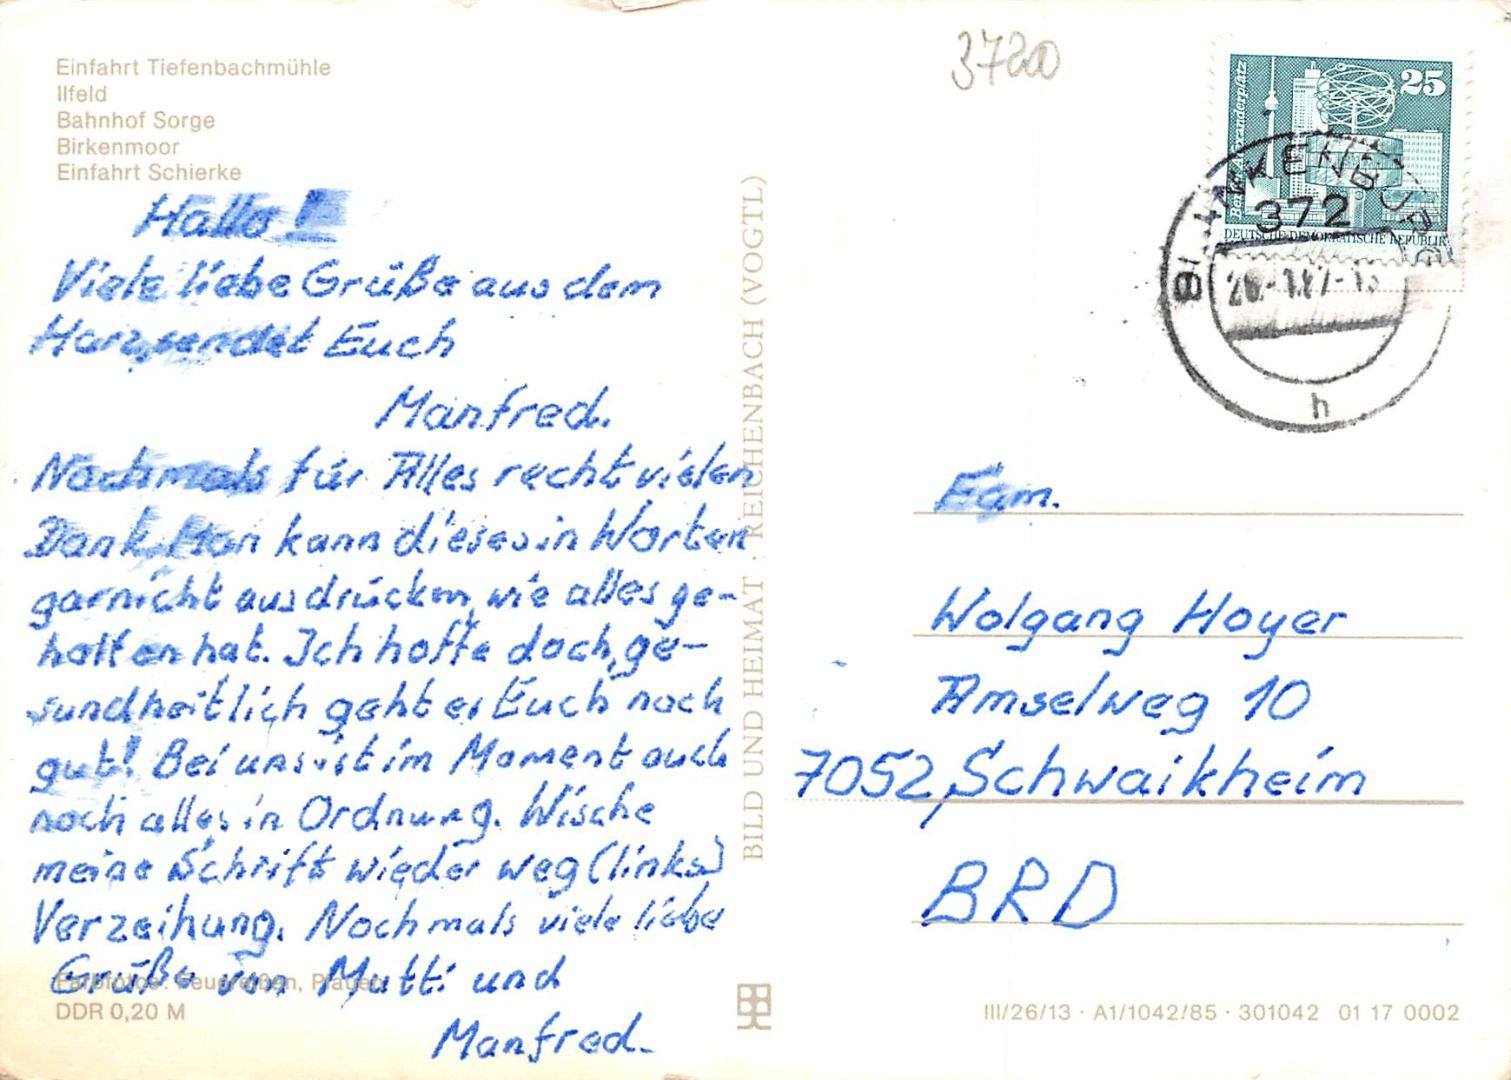 Einfahrt Tiefenbachmühle
Ilfeld
Bahnhof Sorge
Birkenmoor
Einfahrt Schierke
Hallo!
Viele liebe Grüße aus dem
Harz sendet Euch
Manfred.
Nochmals für Alles recht vielen
Dank. Man kann dieses in Worten
garnicht ausdrücken, wie alles ge-
halten hat. Ich hoffe doch, ge-
sundheitlich geht es Euch noch
gut! Bei uns ist im Moment auch
noch alles in Ordnung. Wische
meine Schrift wieder weg (links)
Verzeihung. Nochmals viele liebe
Grüße von Mutti und
Manfred.
Farbfotos: Feuereißen, Plauen
DDR 0,20 M
BILD UND HEIMAT · REICHENBACH (VOGTL)
3720
25
Berlin, Alexanderplatz
DEUTSCHE DEMOKRATISCHE REPUBLIK
BLANKENBURG
372
h
Fam.
Wolgang Hoyer
Amselweg 10
7052, Schwaikheim
BRD
III/26/13 · A1/1042/85 · 301042 01 17 0002